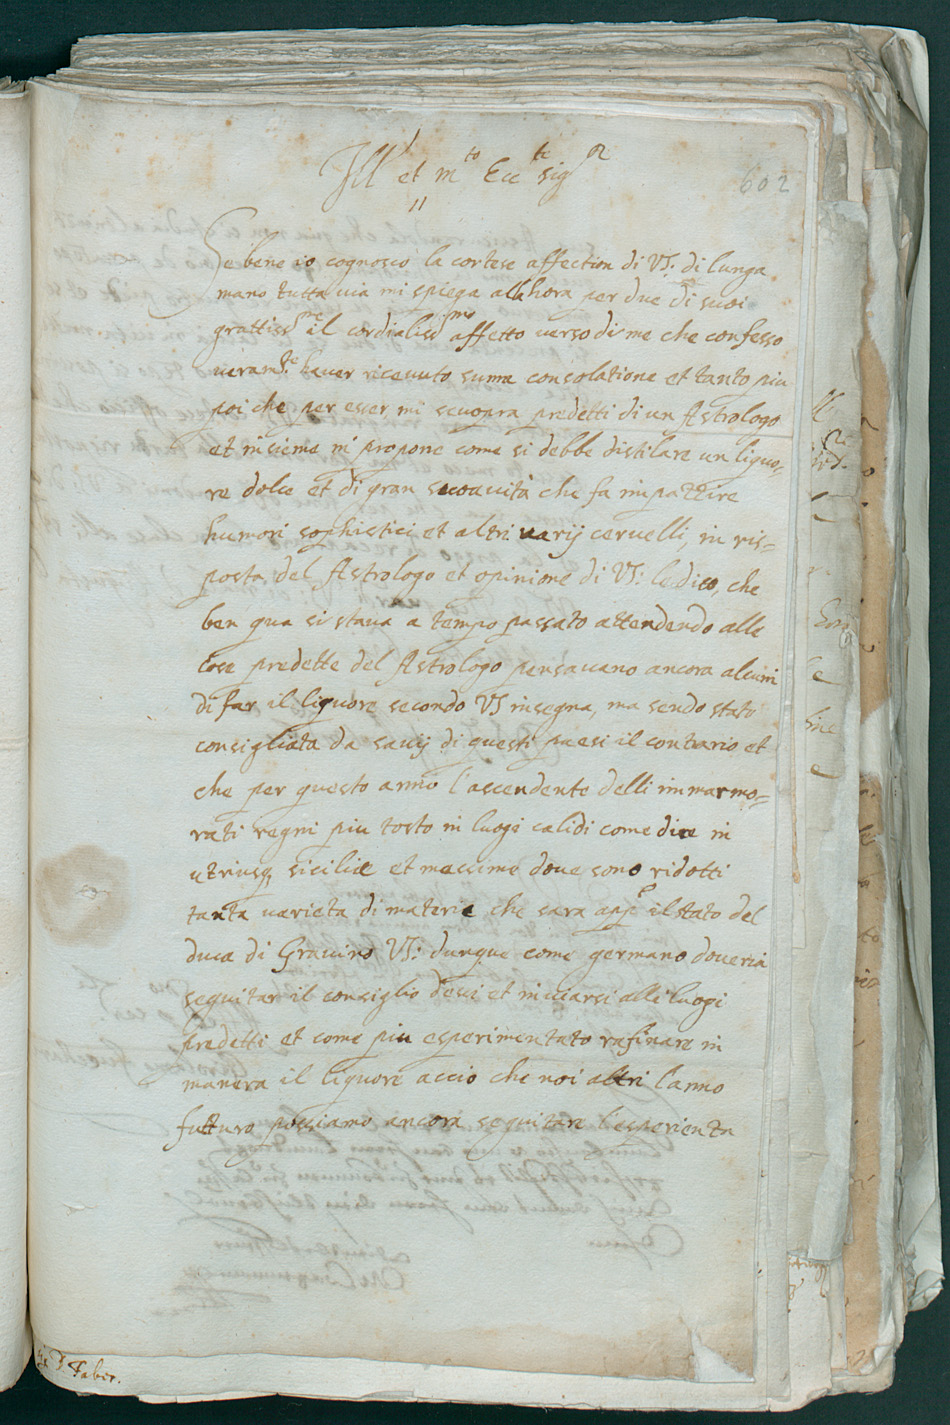 Ill et m.to Ecc.te sig.re
602
Se bene io cognosco la cortese affection di VS: di lunga
mano tutta uia mi spiega allhora per due di suoi
grattiss.me il cordialiss.mo affetto uerso di me che confesso
ueram.te hauer riceuuto suma consolatione et tanto piu
poi che per esser mi scuopra predetti di un Astrologo
et insieme mi propone come si debbe distilare un liquo=
re dolce et di gran scoauità che fa impazzire
humori sophistici et altri uarij ceruelli, in ris=
posta del Astrologo et opinione di VS: le dico, che
ben qua si staua a tempo passato attendendo alle
cose predette del Astrologo pensauano ancora alcuni
di far il liquore secondo VS insegna, ma sendo stato
consigliata da sauij di questi paesi il contrario et
che per questo anno l'ascendente delli immarmo=
rati regni piu tosto in luogi calidi come dire in
utriusq siciliæ et massime doue sono ridotti
tanta uarieta di materie che sara app.o il stato del
duca di Grauino VS: dunque come germano doueria
seguitar il consiglio d'essi et inuiarsi alli luogi
predetti et come piu esperimentato rafinare in
manera il liquore accio che noi altri l'anno
futturo possiamo ancora seguitare l'esperienta
Faber.